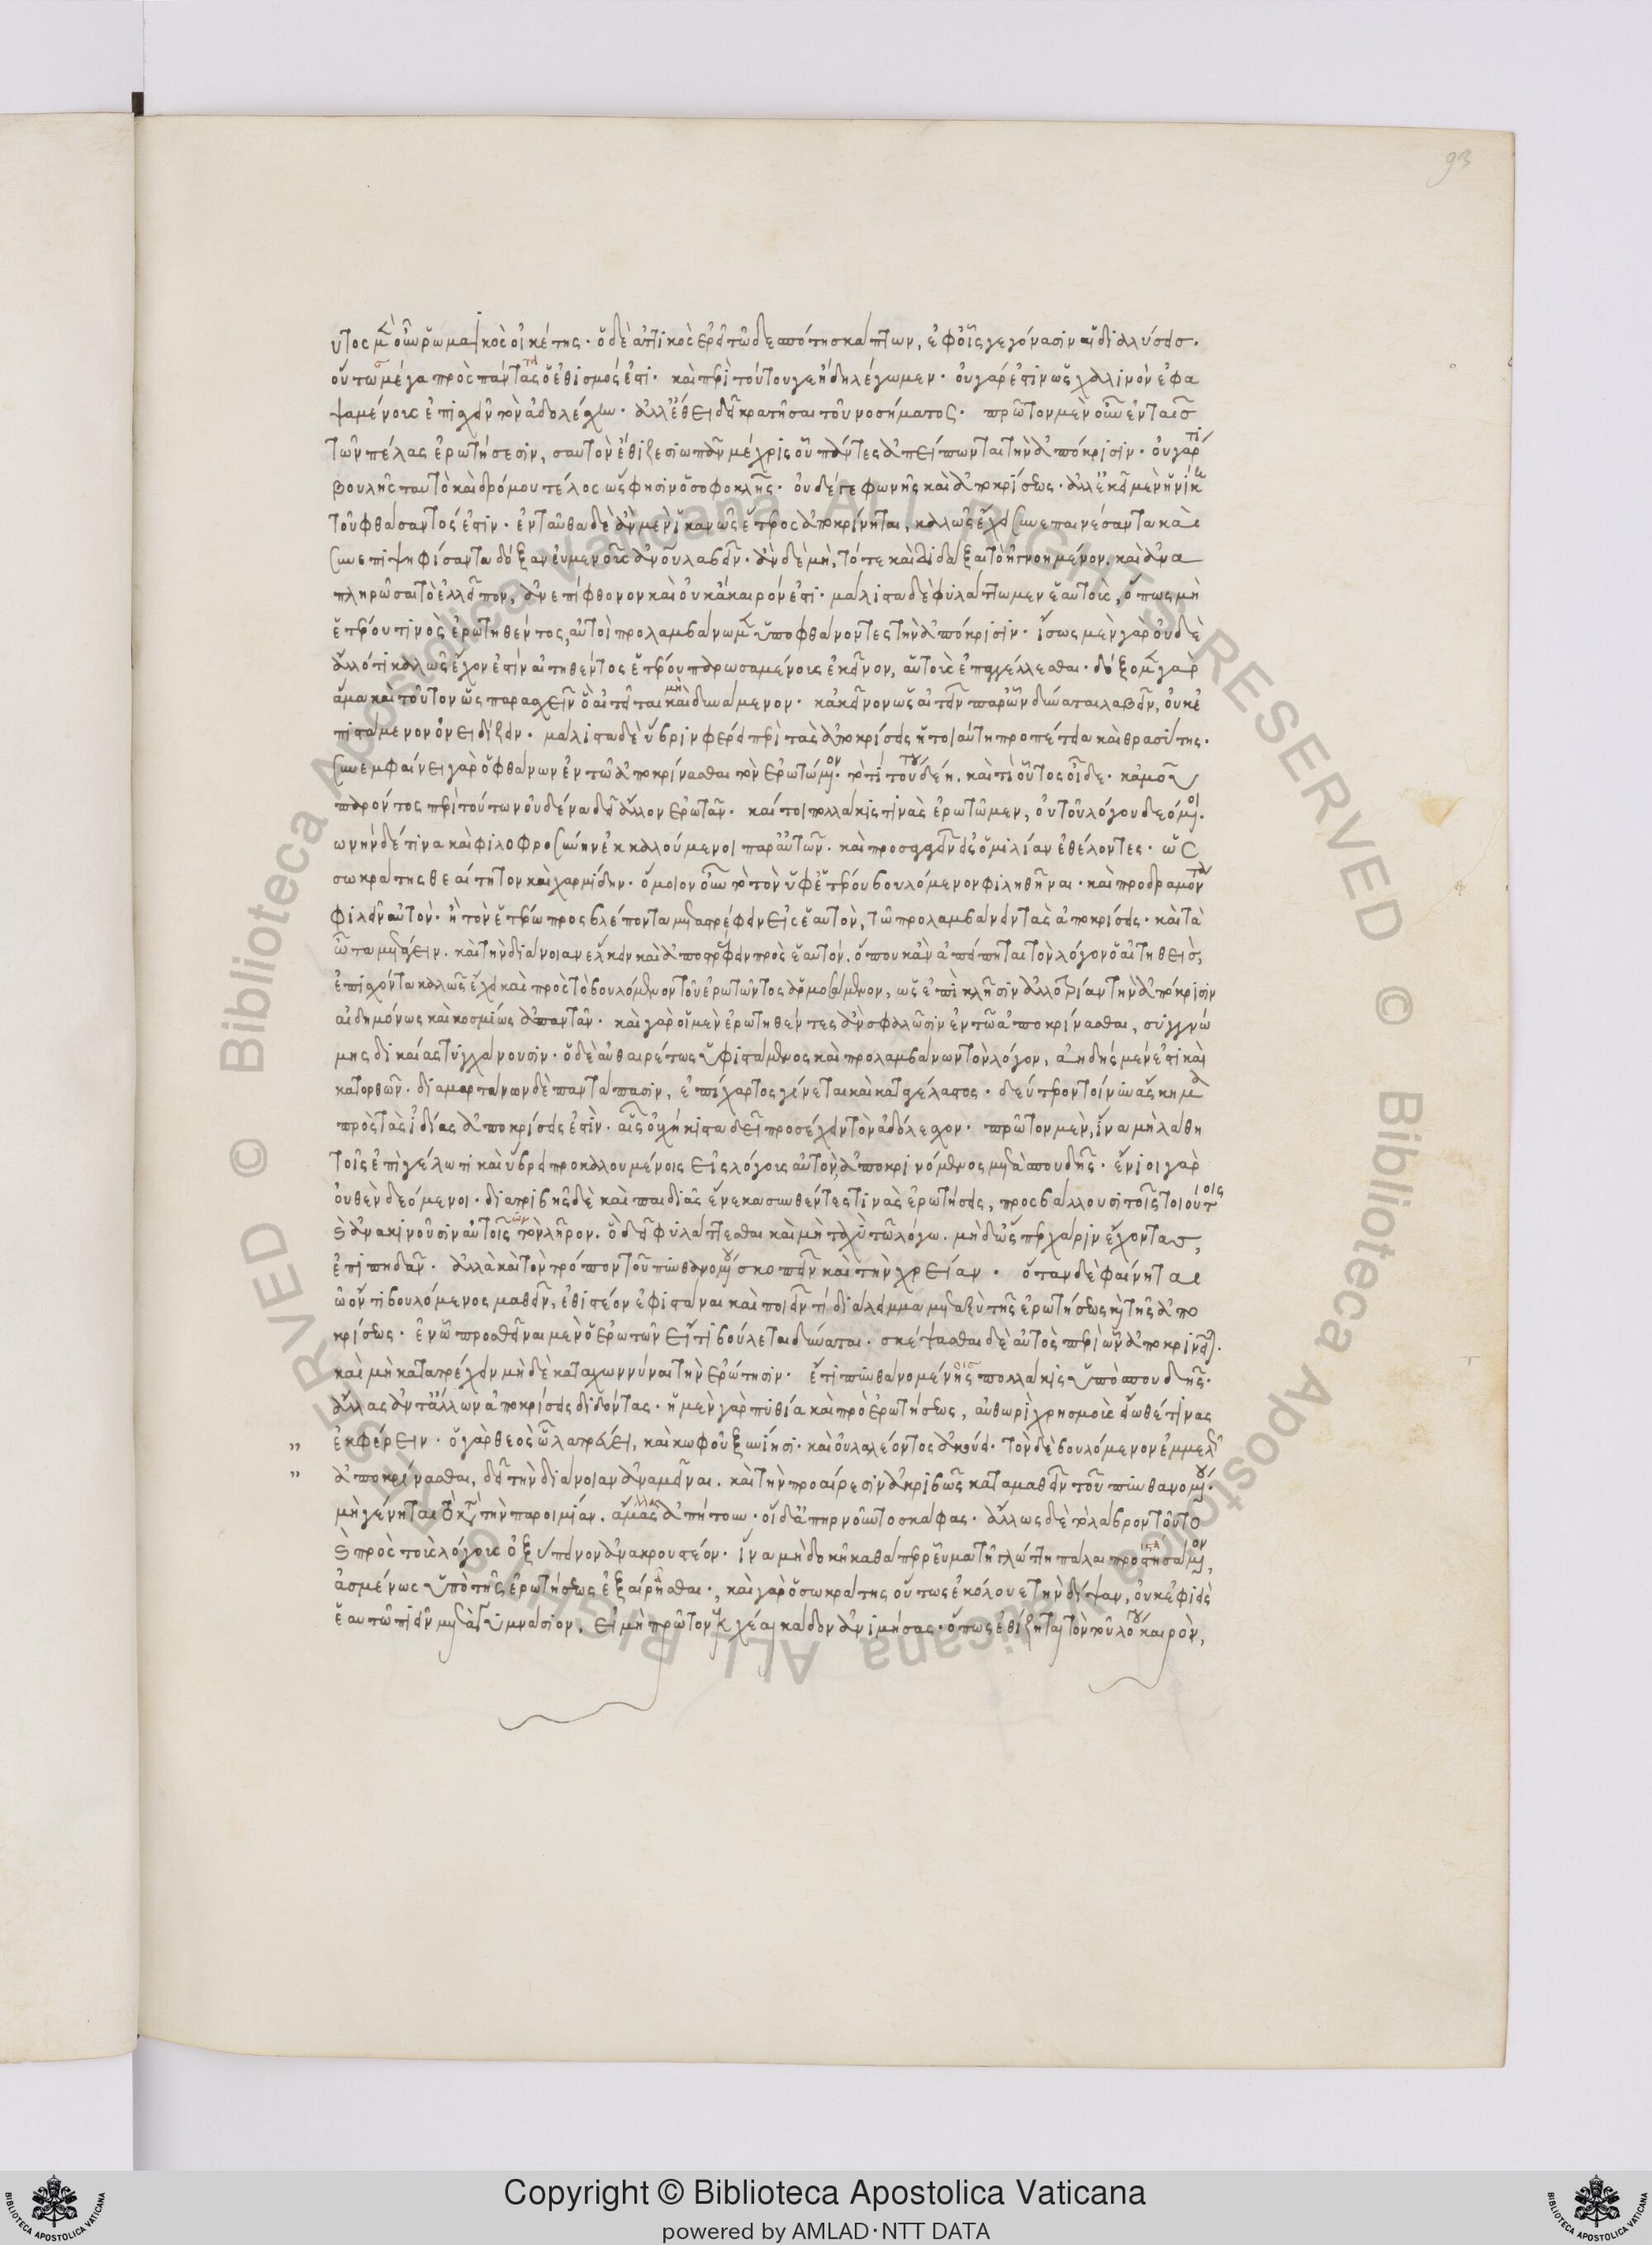 93
οὗτος μὲν οὖν ῥωμαϊκὸς οἰκέτης· ὁ δὲ ἀττικὸς ἐρεῖ τῷ δεσπότῃ σκάπτων, ἐφ' οἷς γεγόνασιν αἱ διαλύσεις.
οὕτω μέγα πρὸς πάντας ὁ ἐθισμός ἐστι· καὶ περὶ τούτου γε ἤδη λέγωμεν· οὐ γάρ ἐστιν ὡς χαλινὸν ἐφα
ψαμένοις ἐπισχεῖν τὸν ἀδολέσχην· ἀλλ' ἔθει δεῖ κρατῆσαι τοῦ νοσήματος· πρῶτον μὲν οὖν ἐν ταῖς
τῶν πέλας ἐρωτήσεσιν, σαυτὸν ἔθιζε σιωπᾶν μέχρις οὗ πάντες ἀπείπωνται τὴν ἀπόκρισιν· οὐ γάρ τι
βουλῆς ταυτὸ καὶ δρόμου τέλος ὥς φησιν ὁ σοφοκλῆς· οὐδέ γε φωνῆς καὶ ἀποκρίσεως· ἀλλ' ἐκεῖ μὲν ἡ νίκη
τοῦ φθάσαντός ἐστιν· ἐνταῦθα δὲ ἐὰν μὲν ἱκανῶς ἕτερος ἀποκρίνηται, καλῶς ἔχει συνεπαινέσαντα καὶ
συνεπιψηφίσαντα δόξαν εὐμενοῦς ἀνθρώπου λαβεῖν· ἐὰν δὲ μή, τότε καὶ διδάξαι τὸ ἠγνοημένον, καὶ ἀνα
πληρῶσαι τὸ ἐλλεῖπον, ἀνεπίφθονον καὶ οὐκ ἄκαιρόν ἐστι· μάλιστα δὲ φυλάττωμεν ἑαυτοὺς, ὅπως μὴ
ἑτέρου τινὸς ἐρωτηθέντος, αὐτοὶ προλαμβάνωμεν ὑποφθάνοντες τὴν ἀπόκρισιν· ἴσως μὲν γὰρ οὐδὲ
ἄλλό τι καλῶς ἔχον ἐστὶν αἰτηθέντος ἑτέρου παρωσαμένοις ἐκεῖνον, αὐτοὺς ἐπαγγέλλεσθαι· δόξομεν γὰρ
ἅμα καὶ τοῦτον ὡς παρασχεῖν ὃ αἰτεῖται μὴ δυνάμενον· κἀκεῖνον ὡς αἰτεῖν παρ' ὧν δύναται λαβεῖν, οὐκ ἐ
πιστάμενον ὀνειδίζειν· μάλιστα δὲ ὕβριν φέρει περὶ τὰς ἀποκρίσεις ἡ τοιαύτη προπέτεια καὶ θρασύτης·
συνεμφαίνει γὰρ ὁ φθάνων ἐν τῷ ἀποκρίνασθαι τὸν ἐρωτώμενον· τὸ τί τούτου δέῃ. καὶ τί οὗτος οἶδε· κἀμοῦ
παρόντος περὶ τούτων οὐδένα δεῖ ἄλλον ἐρωτᾶν· καίτοι πολλάκις τινὰς ἐρωτῶμεν, οὐ τοῦ λόγου δεόμενοι.
φωνὴν δέ τινα καὶ φιλοφροσύνην ἐκκαλούμενοι παρ' αὐτῶν· καὶ προσαγαγεῖν εἰς ὁμιλίαν ἐθέλοντες· ὡς
σωκράτης θεαίτητον καὶ χαρμίδην· ὅμοιον οὖν τὸ τὸν ὑφ' ἑτέρου βουλόμενον φιληθῆναι· καὶ προδραμόντα
φιλεῖν αὐτόν· ἢ τὸν ἑτέρῳ προσβλέποντα μεταστρέφειν εἰς ἑαυτὸν, τῷ προλαμβάνειν τὰς ἀποκρίσεις· καὶ τὰ
ὦτα μετάγειν· καὶ τὴν διάνοιαν ἕλκειν καὶ ἀποστρέφειν πρὸς ἑαυτόν· ὅπου κἂν ἀπείπηται τὸν λόγον ὁ αἰτηθεὶς,
ἐπισχόντα καλῶς ἔχει καὶ πρὸς τὸ βουλόμενον τοῦ ἐρωτῶντος ἁρμοσάμενον, ὡς ἐπὶ κλῆσιν ἀλλοτρίαν τὴν ἀπόκρισιν
αἰδημόνως καὶ κοσμίως ἀπαντᾶν· καὶ γὰρ οἱ μὲν ἐρωτηθέντες ἂν σφαλῶσιν ἐν τῷ ἀποκρίνασθαι, συγγνώ
μης δικαίας τυγχάνουσιν· ὁ δὲ αὐθαιρέτως ὑφιστάμενος καὶ προλαμβάνων τὸν λόγον, ἀηδὴς μέν ἐστι καὶ
κατορθῶν· διαμαρτάνων δὲ παντάπασιν, ἐπίχαρτος γίνεται καὶ καταγέλαστος· δεύτερον τοίνυν ἄσκημα
πρὸς τὰς ἰδίας ἀποκρίσεις ἐστὶν· αἷς οὐχ ἥκιστα δεῖ προσέχειν τὸν ἀδόλεσχον· πρῶτον μὲν, ἵνα μὴ λάθῃ
τοῖς ἐπὶ γέλωτι καὶ ὕβρει προκαλουμένοις εἰς λόγους αὐτὸν, ἀποκρινόμενος μετὰ σπουδῆς· ἔνιοι γὰρ
οὐθὲν δεόμενοι· διατριβῆς δὲ καὶ παιδιᾶς ἕνεκα συνθέντες τινὰς ἐρωτήσεις, προσβάλλουσι τοῖς τοιούτοις
καὶ ἀνακινοῦσιν αὐτοῖς τὸν λῆρον· ὃ δεῖ φυλάττεσθαι καὶ μὴ ταχὺ τῷ λόγῳ. μηδ' ὥσπερ χάριν ἔχοντας,
ἐπιπηδᾶν· ἀλλὰ καὶ τὸν τρόπον τοῦ πυνθανομένου σκοπεῖν καὶ τὴν χρείαν· ὅταν δὲ φαίνηται
ὦ ὄντι βουλόμενος μαθεῖν, ἐθιστέον ἐφιστάναι καὶ ποιεῖν τι διάλειμμα μεταξὺ τῆς ἐρωτήσεως καὶ τῆς ἀπο
κρίσεως· ἐν ᾧ προσθεῖναι μὲν ὁ ἐρωτῶν εἴ τι βούλεται δύναται· σκέψασθαι δὲ αὐτὸς περὶ ὧν ἀποκρινεῖται.
καὶ μὴ κατατρέχειν μηδὲ καταχωννύναι τὴν ἐρώτησιν· ἔτι πυνθανομένης πολλάκις ὑπὸ σπουδῆς·
ἄλλας ἀντ' ἄλλων ἀποκρίσεις διδόντας· ἡ μὲν γὰρ πυθία καὶ πρὸ ἐρωτήσεως, αὐθωρὶ χρησμοὺς εἴωθέ τινας
ἐκφέρειν· ὁ γὰρ θεὸς ᾧ λατρεύει, καὶ κωφοῦ ξυνίησι· καὶ οὐ λαλέοντος ἀκούει· τὸν δὲ βουλόμενον ἐμμελῶς
ἀποκρίνασθαι, δεῖ τὴν διάνοιαν ἀναμεῖναι. καὶ τὴν προαίρεσιν ἀκριβῶς καταμαθεῖν τοῦ πυνθανομένου.
μὴ γένηται τὸ κατὰ τὴν παροιμίαν. ἄμας ἀπῄτουν· οἱ δ' ἀπηρνοῦντο σκάφας· ἄλλως δὲ τὸ λάβρον τοῦτο
καὶ πρὸς τοὺς λόγους ὀξύπεινον ἀνακρουστέον· ἵνα μὴ δοκῇ καθάπερ ῥεῦμα τῇ γλώττῃ πάλαι προσιστάμενον,
ἀσμένως ὑπὸ τῆς ἐρωτήσεως ἐξαίρεσθαι· καὶ γὰρ ὁ σωκράτης οὕτως ἐκόλουε τὴν δίψαν, οὐκ ἐφιεὶς
ἑαυτῷ πιεῖν μετὰ γυμνάσιον, εἰ μὴ πρῶτον ἐκχέαι κάδον ἀνιμήσας· ὅπως ἐθίζηται τὸν τοῦ λόγου καιρὸν,